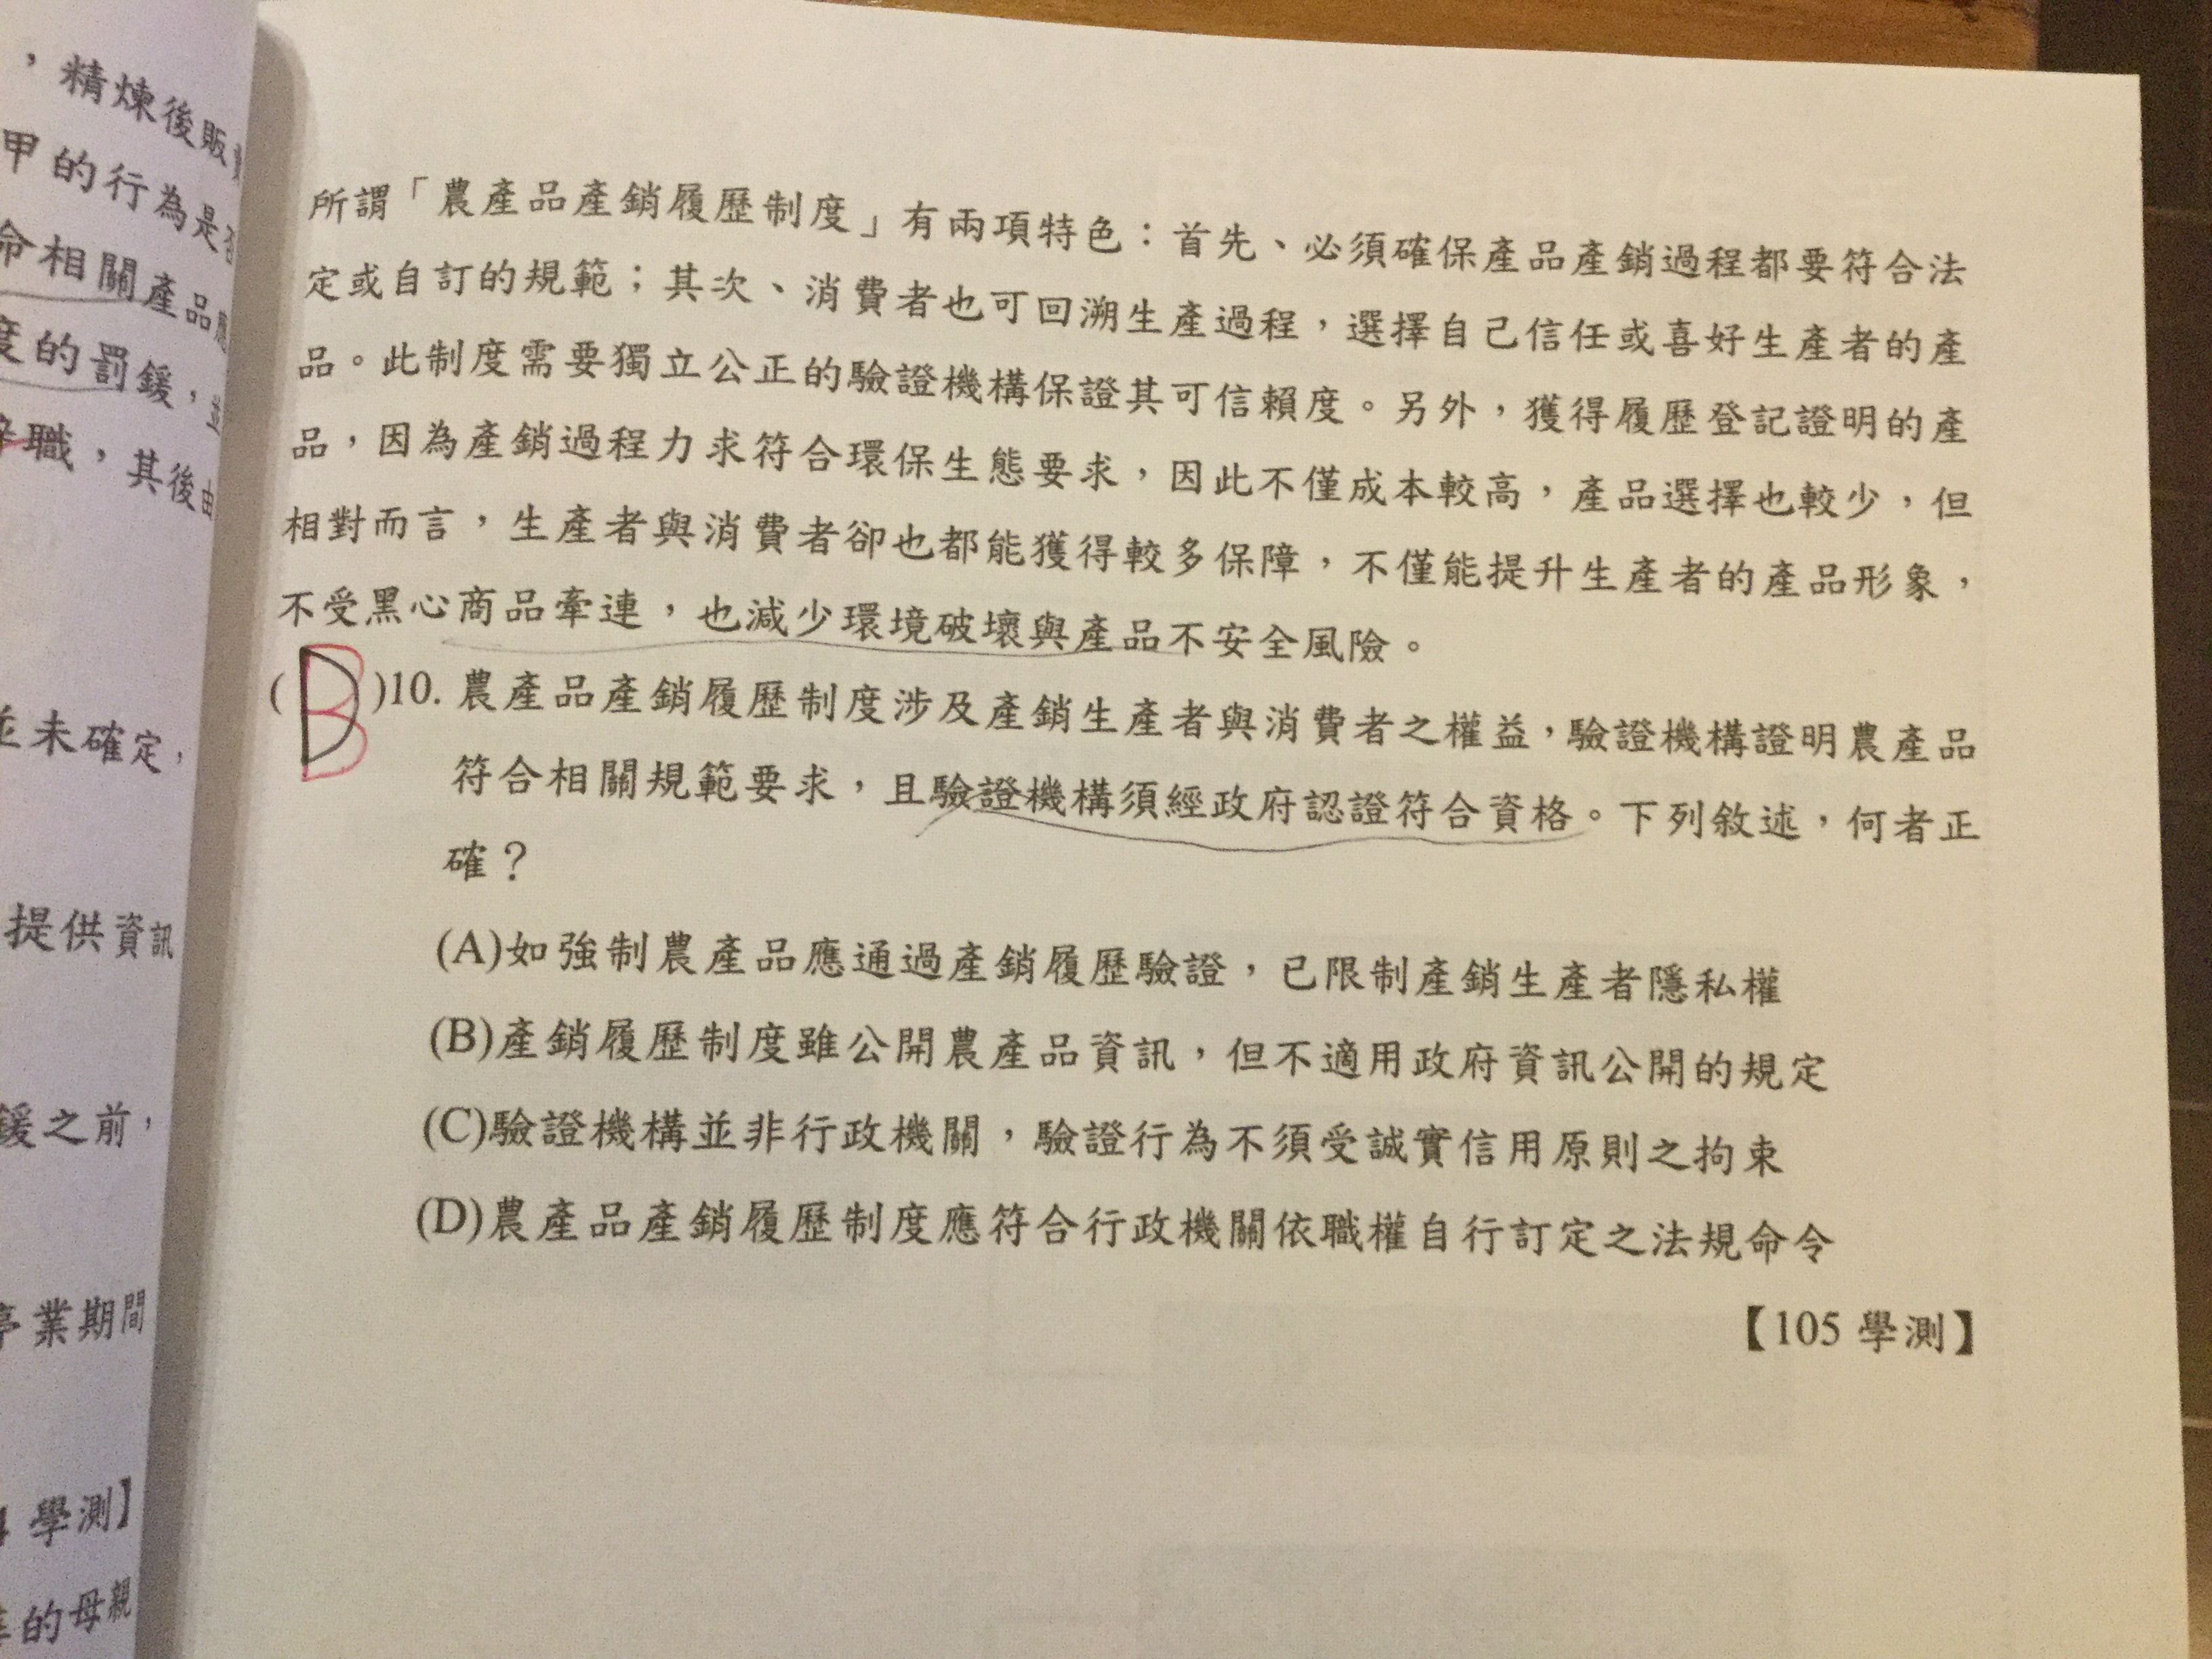 ，精煉後販
甲的行為是否
命相關產品應
度的罰鍰，並
職，其後由
並未確定，
提供資訊
鍰之前，
停業期間
學測】
的母親
所謂「農產品產銷履歷制度」有兩項特色：首先、必須確保產品產銷過程都要符合法
定或自訂的規範；其次、消費者也可回溯生產過程，選擇自己信任或喜好生產者的產
品。此制度需要獨立公正的驗證機構保證其可信賴度。另外，獲得履歷登記證明的產
品，因為產銷過程力求符合環保生態要求，因此不僅成本較高，產品選擇也較少，但
相對而言，生產者與消費者卻也都能獲得較多保障，不僅能提升生產者的產品形象，
不受黑心商品牽連，也減少環境破壞與產品不安全風險。
(B)10. 農產品產銷履歷制度涉及產銷生產者與消費者之權益，驗證機構證明農產品
符合相關規範要求，且驗證機構須經政府認證符合資格。下列敘述，何者正
確？
(A)如強制農產品應通過產銷履歷驗證，已限制產銷生產者隱私權
(B)產銷履歷制度雖公開農產品資訊，但不適用政府資訊公開的規定
(C)驗證機構並非行政機關，驗證行為不須受誠實信用原則之拘束
(D)農產品產銷履歷制度應符合行政機關依職權自行訂定之法規命令
【105 學測】